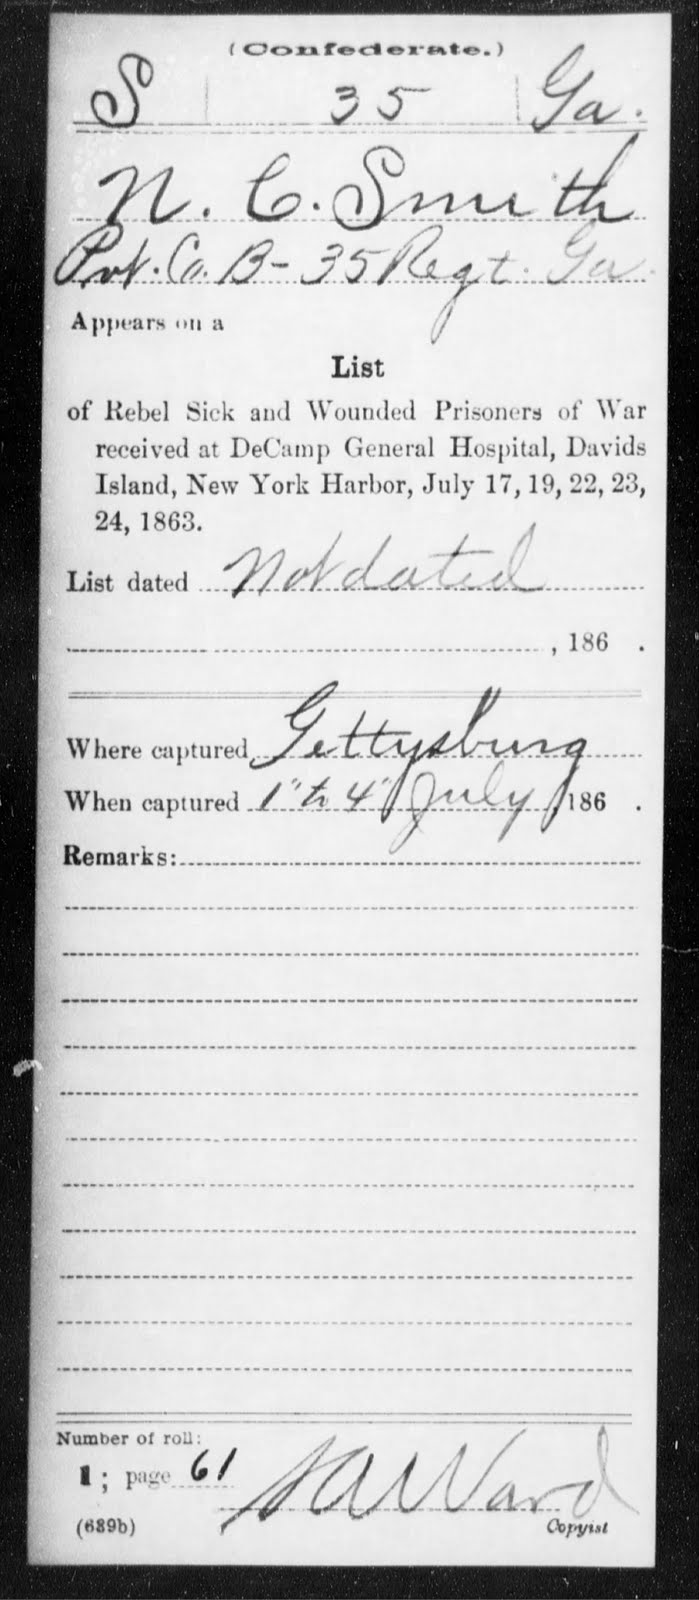 (Confederate.)
S 35 Ga.
N. C. Smith
Pvt. Co. B - 35 Regt. Ga.
Appears on a
List
of Rebel Sick and Wounded Prisoners of War
received at DeCamp General Hospital, Davids
Island, New York Harbor, July 17, 19, 22, 23,
24, 1863.
List dated Not dated
, 186 .
Where captured Gettysburg
When captured 1" to 4" July, 186 .
Remarks:
Number of roll:
1; page 61
Ward
(639b) Copyist